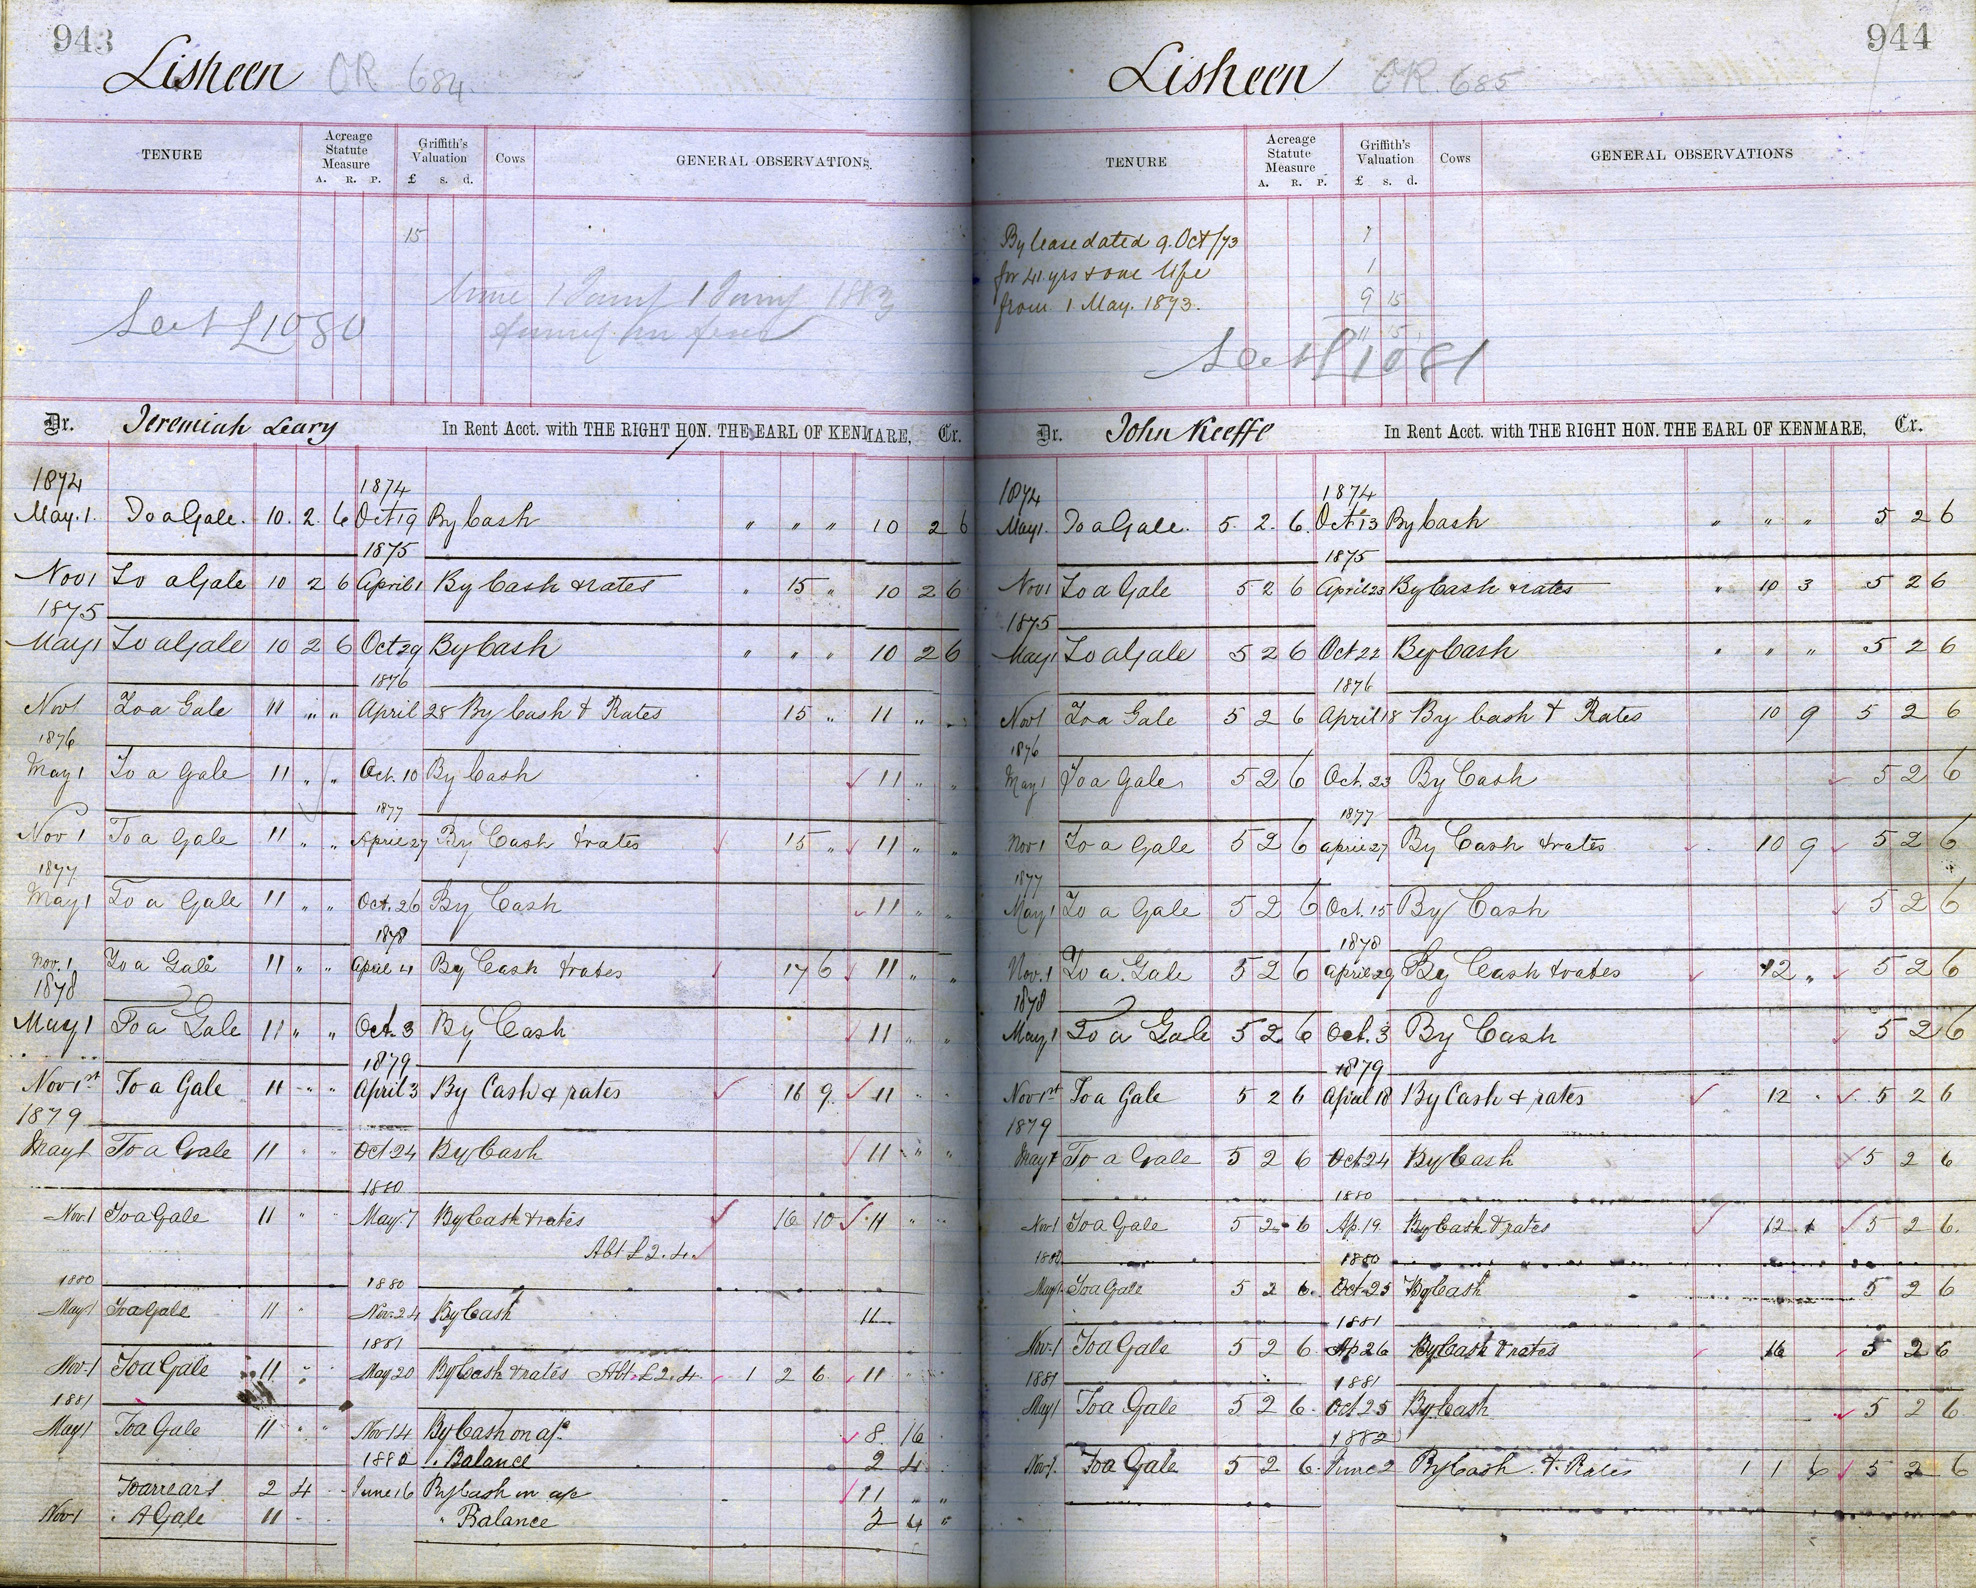 943
Lisheen OR 684
TENURE
Acreage Statute Measure
A. R. P.
Griffith's Valuation
£ s. d.
Cows
GENERAL OBSERVATIONS.
15
1883
Lect £1080
Dr. Jeremiah Leary In Rent Acct. with THE RIGHT HON. THE EARL OF KENMARE, Cr.
1874 1874
May. 1. To a Gale. 10. 2. 6 Oct 19 By Cash " " " 10 2 6
1875
Nov 1 To a Gale 10 2 6 April 1 By Cash & rates " 15 " 10 2 6
1875
May 1 To a Gale 10 2 6 Oct 29 By Cash " " " 10 2 6
1876
Nov 1 To a Gale 11 " " April 28 By Cash & Rates 15 " 11 " "
1876
May 1 To a Gale 11 " " Oct. 10 By Cash 11 " "
1877
Nov 1 To a Gale 11 " " April 27 By Cash & rates 15 " 11 " "
1877
May 1 To a Gale 11 " " Oct. 26 By Cash 11 " "
1878
Nov. 1 To a Gale 11 " " April 4 By Cash & rates 17 6 11 " "
1878
May 1 To a Gale 11 " " Oct. 3 By Cash 11 " "
1879
Nov 1st To a Gale 11 " " April 3 By Cash & rates 16 9 11 " "
1879
May 1 To a Gale 11 " " Oct 24 By Cash 11 " "
1880
Nov. 1 To a Gale 11 " " May. 7 By Cash & rates 16 10 11 " "
Abt £2. 4
1880 1880
May 1 To a Gale 11 " Nov. 24 By Cash 11
1881
Nov. 1 To a Gale 11 " " May 20 By Cash & rates Abt. £2. 4. 1 2 6 11 " "
1881
May 1 To a Gale 11 " " Nov 14 By Cash on a/c 8 16
1882 " Balance 2 4
To arrears 2 4 June 16 By Cash on a/c 11 " "
Nov 1 " A Gale 11 " Balance 2 4 "
944
Lisheen OR. 685
TENURE
Acreage Statute Measure
A. R. P.
Griffith's Valuation
£ s. d.
Cows
GENERAL OBSERVATIONS
By lease dated 9. Oct/73 7
for 41 yrs & one life 1
from 1 May. 1873. 9 15
11 15
Lect £1081
Dr. John Keeffe In Rent Acct. with THE RIGHT HON. THE EARL OF KENMARE, Cr.
1874 1874
May 1. To a Gale. 5. 2. 6. Oct 13 By Cash " " " 5 2 6
1875
Nov 1 To a Gale 5 2 6 April 23 By Cash & rates " 10 3 5 2 6
1875
May 1 To a Gale 5 2 6 Oct 22 By Cash " " " 5 2 6
1876
Nov 1 To a Gale 5 2 6 April 18 By Cash & Rates 10 9 5 2 6
1876
May 1 To a Gale 5 2 6 Oct. 23 By Cash 5 2 6
1877
Nov 1 To a Gale 5 2 6 April 27 By Cash & rates 10 9 5 2 6
1877
May 1 To a Gale 5 2 6 Oct. 15 By Cash 5 2 6
1878
Nov. 1 To a Gale 5 2 6 April 29 By Cash & rates 12 " 5 2 6
1878
May 1 To a Gale 5 2 6 Oct. 3 By Cash 5 2 6
1879
Nov 1st To a Gale 5 2 6 April 18 By Cash & rates 12 " 5 2 6
1879
May 1 To a Gale 5 2 6 Oct. 24 By Cash 5 2 6
1880
Nov 1 To a Gale 5 2 6 Ap. 19. By Cash & rates 12 1 5 2 6.
1880 1880
May 1 To a Gale 5 2 6. Oct. 25 By Cash 5 2 6
1881
Nov. 1 To a Gale 5 2 6. Ap 26 By Cash & rates 16 5 2 6
1881 1881
May 1 To a Gale 5 2 6. Oct 25 By Cash 5 2 6.
1882
Nov. 1. To a Gale 5 2 6. June 2 By Cash & Rates 1 1 6 5 2 6